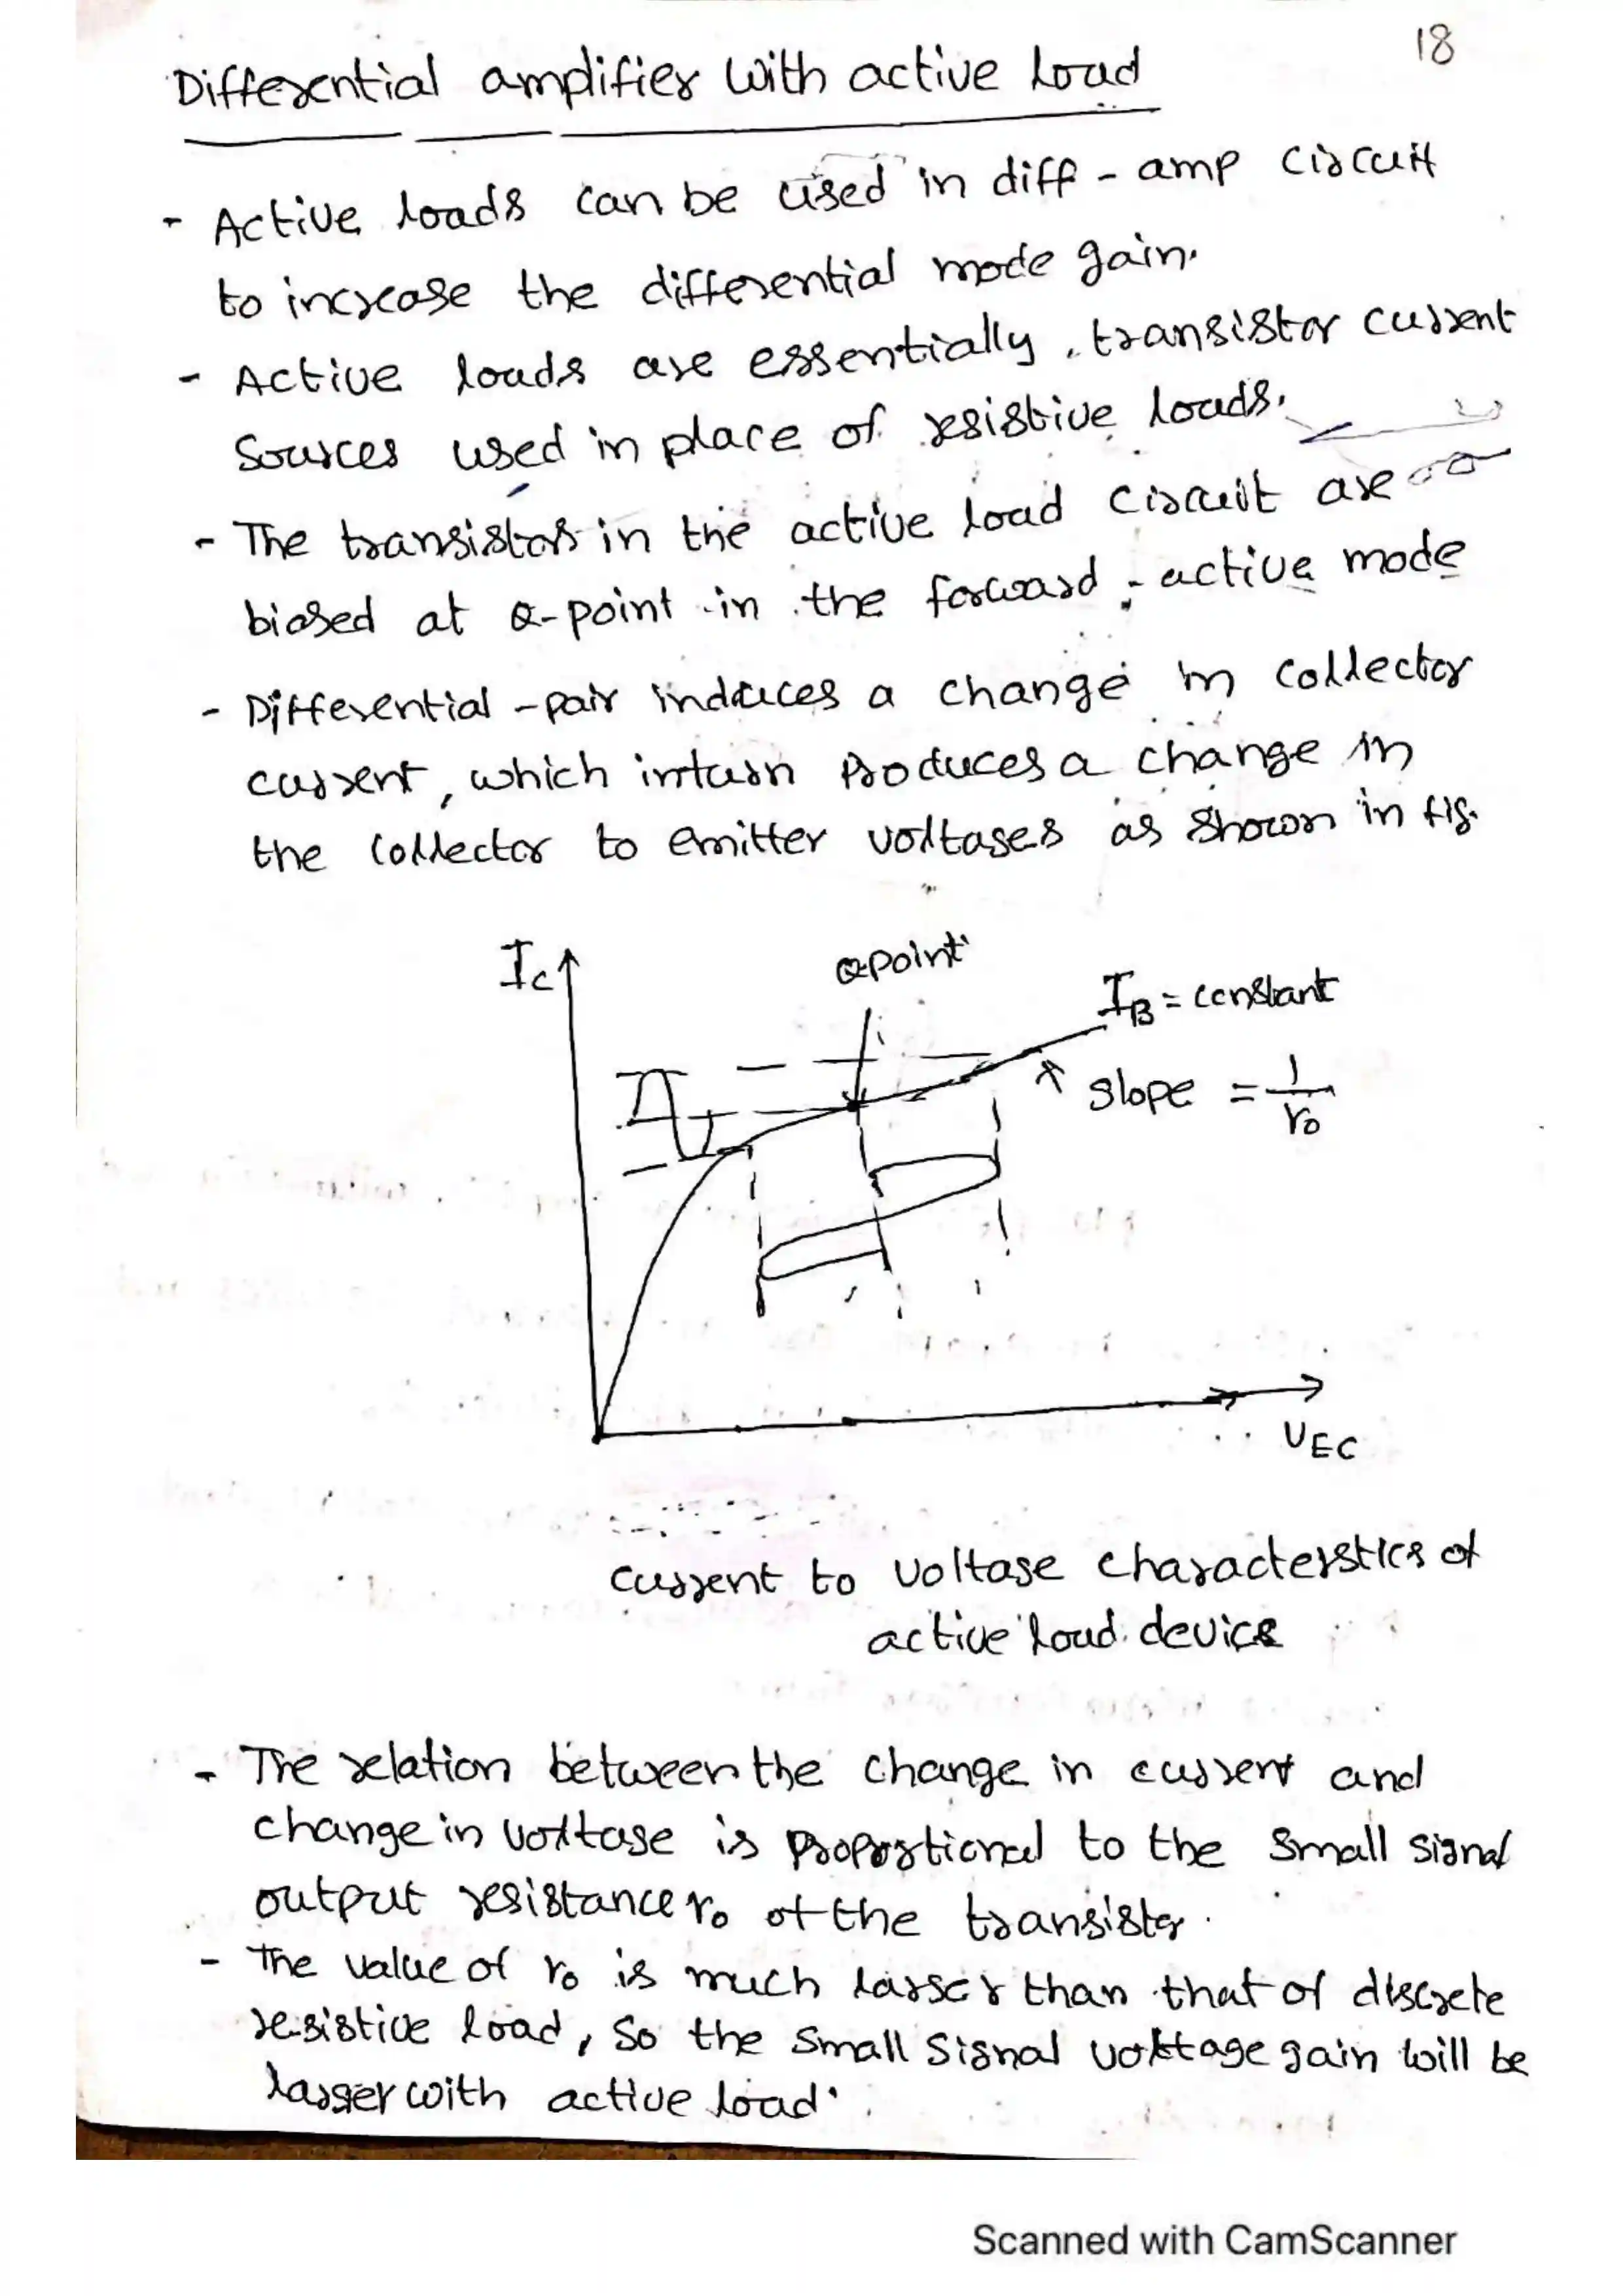 18
Differential amplifier with active load
- Active loads can be used in diff-amp circuit
to increase the differential mode gain.
- Active loads are essentially transistor current
sources used in place of resistive loads.
- The transistors in the active load circuit are
biased at Q-point in the forward-active mode
- Differential-pair induces a change in collector
current, which inturn produces a change in
the collector to emitter voltages as shown in fig.
Ic
Q-point
IB = constant
slope = 1/ro
VEC
current to voltage characterstics of
active load device
- The relation between the change in current and
change in voltage is proportional to the small signal
output resistance ro of the transistor.
- The value of ro is much larger than that of discrete
resistive load, so the small signal voltage gain will be
larger with active load.
Scanned with CamScanner